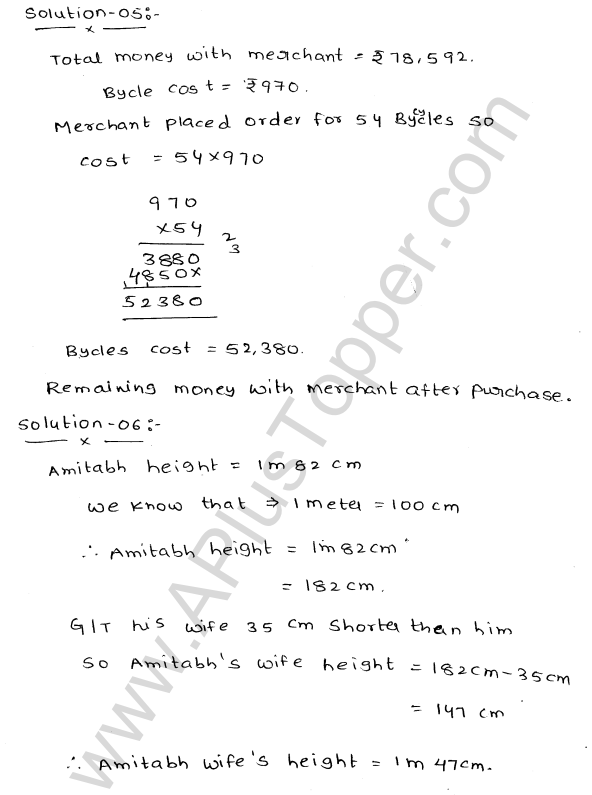 Solution-05:-
x
Total money with merchant = ₹78,592.
Bycle cost = ₹970.
Merchant placed order for 54 Bycycles so
cost = 54×970
970
×54
3880 2
3
4850×
52380
Bycles cost = 52,380.
Remaining money with merchant after purchase.
Solution-06:-
x
Amitabh height = 1m 82 cm
we know that ⇒ 1 meter = 100 cm
∴ Amitabh height = 1m 82cm
= 182cm.
GIT his wife 35 cm shorter than him
So Amitabh's wife height = 182cm-35cm
= 147 cm
∴ Amitabh wife's height = 1m 47cm.
www.APlusTopper.com